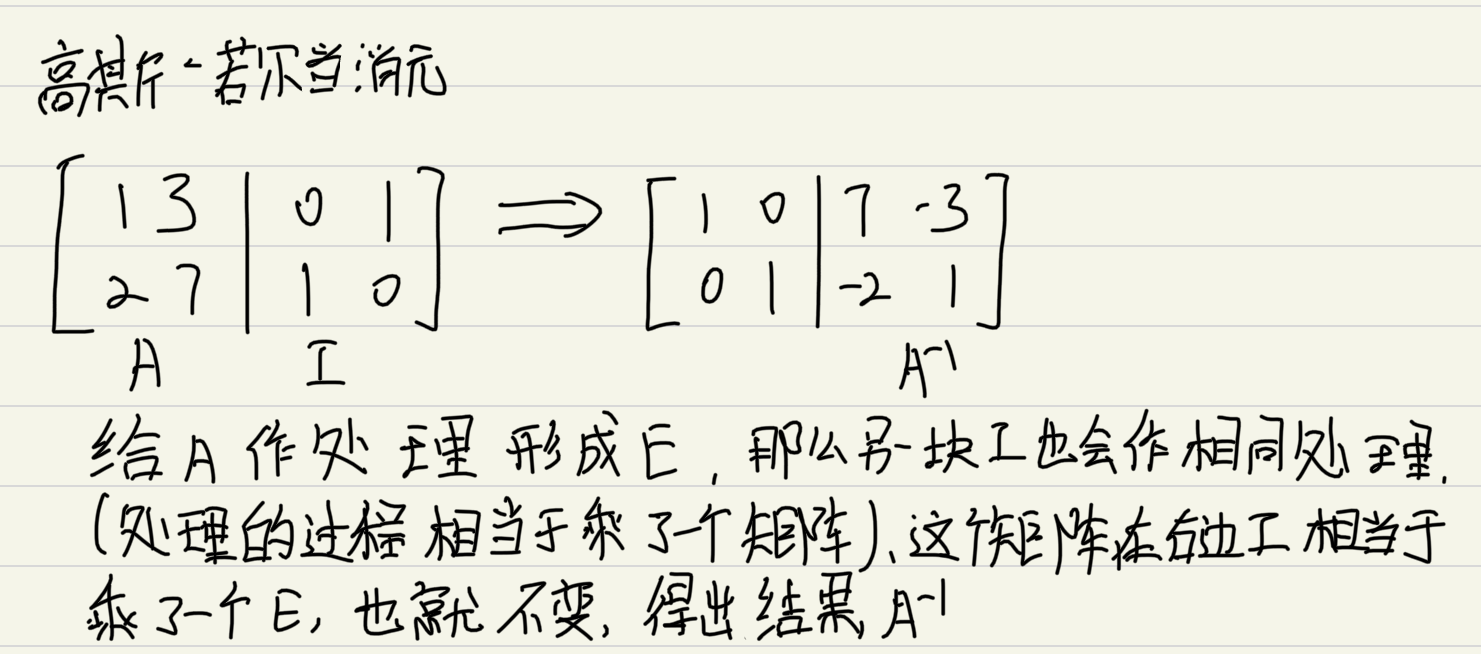 高斯-若尔当消元
[ 1 3 | 0 1 ] ⟹ [ 1 0 | 7 -3 ]
[ 2 7 | 1 0 ] [ 0 1 | -2 1 ]
A I A⁻¹
给A作处理形成E,那么另一块I也会作相同处理.
(处理的过程相当于乘了一个矩阵).这个矩阵在右边I相当于
乘了一个E,也就不变,得出结果A⁻¹